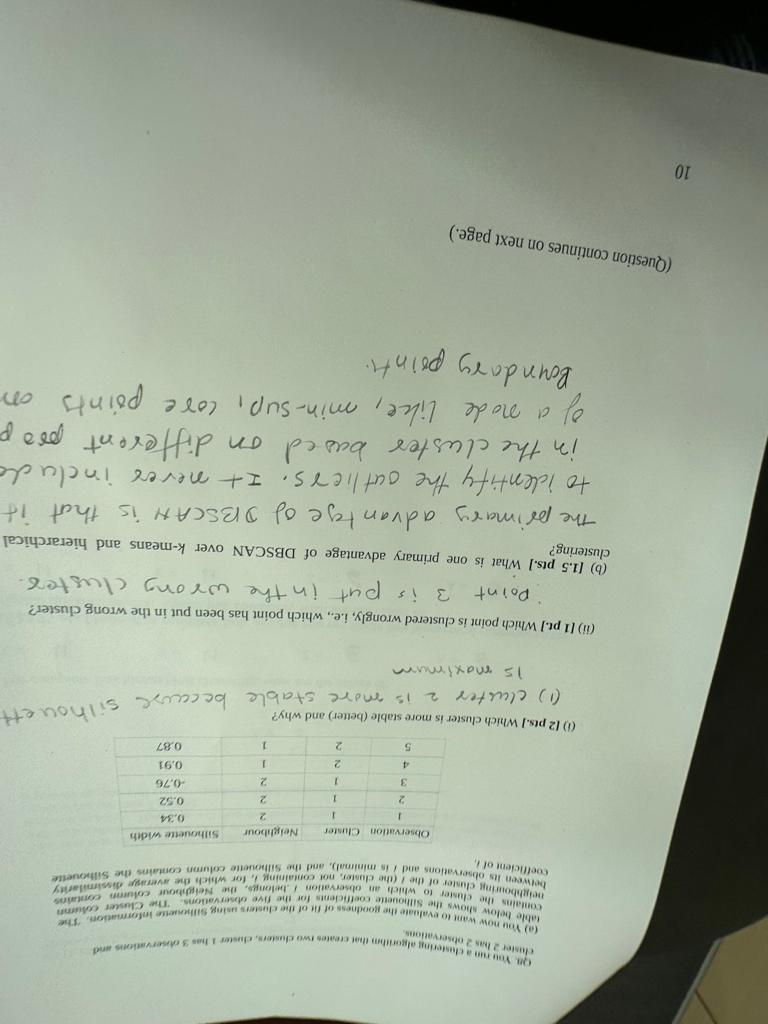 Q8. You run a clustering algorithm that creates two clusters, cluster 1 has 3 observations and
cluster 2 has 2 observations.
(a) You now want to evaluate the goodness of fit of the clusters using Silhouette information. The
table below shows the Silhouette coefficients for the five observations. The Cluster column
contains the cluster to which an observation i belongs, the Neighbour column contains
neighbouring cluster of the i (the cluster, not containing i, for which the average dissimilarity
between its observations and i is minimal), and the Silhouette column contains the Silhouette
coefficient of i.
Observation Cluster Neighbour Silhouette width
1 1 2 0.34
2 1 2 0.52
3 1 2 -0.76
4 2 1 0.91
5 2 1 0.87
(i) [2 pts.] Which cluster is more stable (better) and why?
(i) cluster 2 is more stable because silhouett
is maximum
(ii) [1 pt.] Which point is clustered wrongly, i.e., which point has been put in the wrong cluster?
point 3 is put in the wrong cluster.
(b) [1.5 pts.] What is one primary advantage of DBSCAN over k-means and hierarchical
clustering?
the primary advantage of DBSCAN is that it
to identify the outliers. It never include
in the cluster based on different
of a node like, min-sup, core points
Boundary point.
(Question continues on next page.)
10